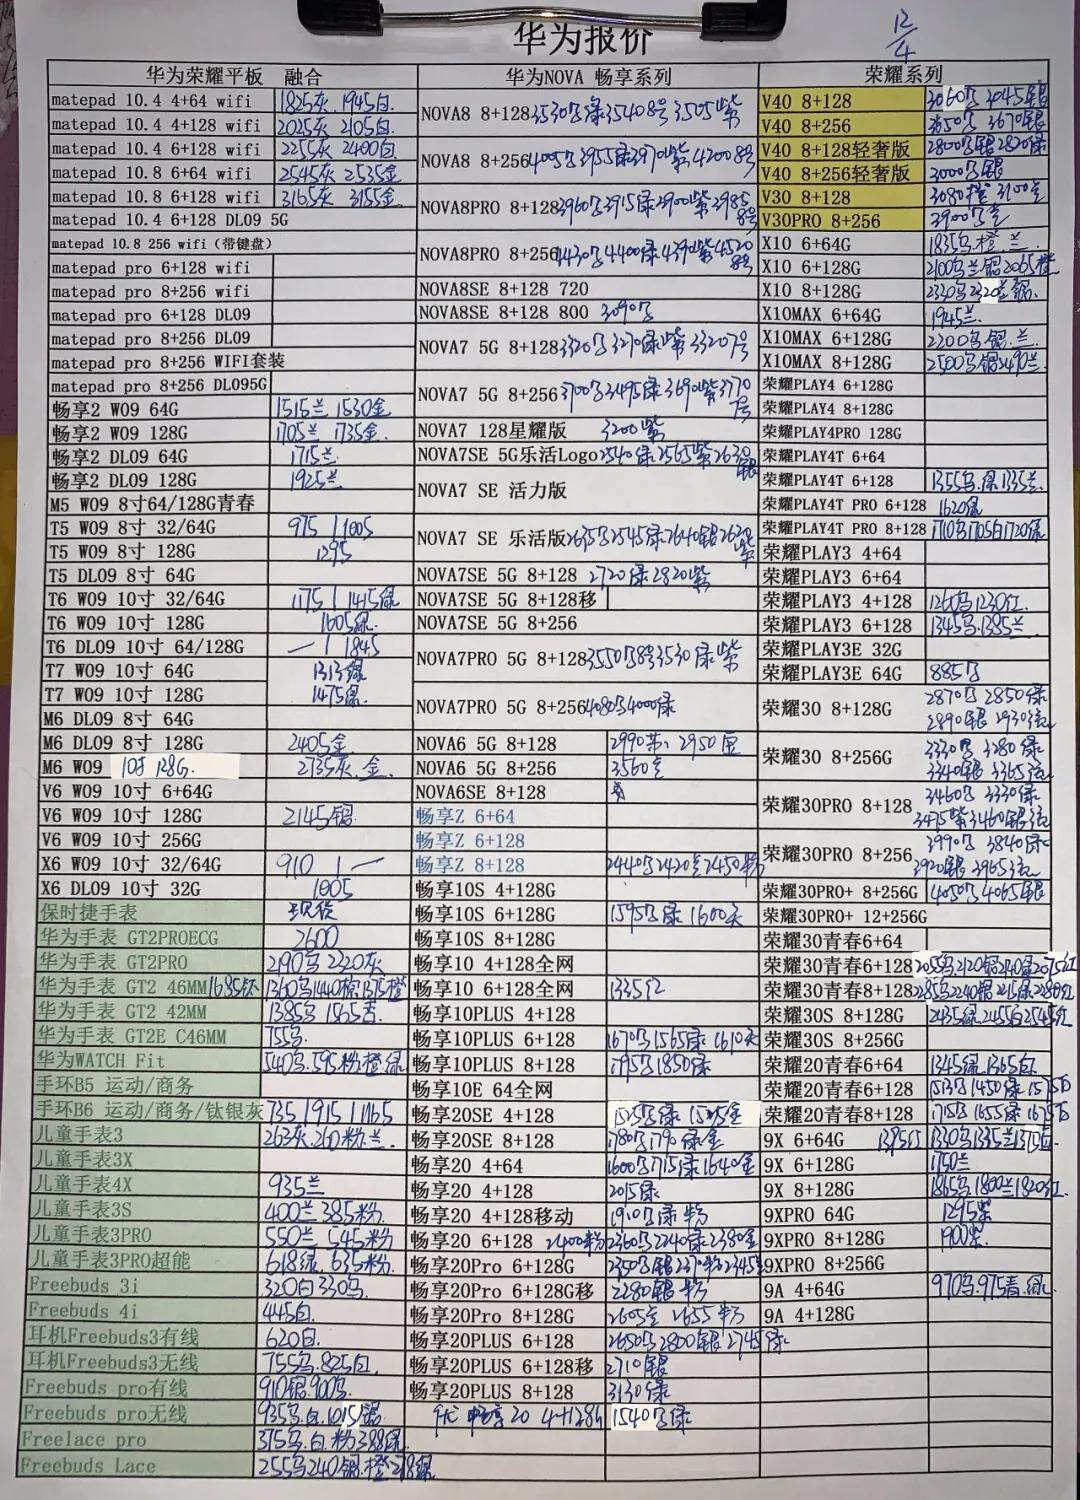 华为报价
12/4
华为荣耀平板 融合
matepad 10.4 4+64 wifi 1825灰 1945白
matepad 10.4 4+128 wifi 2025灰 2105白
matepad 10.4 6+128 wifi 2255灰 2400白
matepad 10.8 6+64 wifi 2545灰 2535金
matepad 10.8 6+128 wifi 3165灰 3155金
matepad 10.4 6+128 DL09 5G
matepad 10.8 256 wifi（带键盘）
matepad pro 6+128 wifi
matepad pro 8+256 wifi
matepad pro 6+128 DL09
matepad pro 8+256 DL09
matepad pro 8+256 WIFI套装
matepad pro 8+256 DL095G
畅享2 W09 64G 1515兰 1530金
畅享2 W09 128G 1705兰 1735金
畅享2 DL09 64G 1715兰
畅享2 DL09 128G 1925兰
M5 W09 8寸64/128G青春
T5 W09 8寸 32/64G 975 | 1005
T5 W09 8寸 128G 1295
T5 DL09 8寸 64G
T6 W09 10寸 32/64G 1175 | 1415绿
T6 W09 10寸 128G 1605绿
T6 DL09 10寸 64/128G — | 1845
T7 W09 10寸 64G 1313绿
T7 W09 10寸 128G 1475绿
M6 DL09 8寸 64G
M6 DL09 8寸 128G 2405金
M6 W09 10寸 128G. 2735灰.金
V6 W09 10寸 6+64G
V6 W09 10寸 128G 2145银
V6 W09 10寸 256G
X6 W09 10寸 32/64G 910 | —
X6 DL09 10寸 32G 1005
保时捷手表 现货
华为手表 GT2PROECG 2600
华为手表 GT2PRO 2190乌 2320灰
华为手表 GT2 46MM 1685钛 1360乌1440棕1375橙
华为手表 GT2 42MM 1385乌
华为手表 GT2E C46MM 755乌
华为WATCH Fit 540乌.595粉.橙.绿
手环B5 运动/商务
手环B6 运动/商务/钛银灰 735 | 915 | 1165
儿童手表3 263灰.260粉.兰
儿童手表3X
儿童手表4X 935兰
儿童手表3S 400兰 385粉
儿童手表3PRO 550兰 545粉
儿童手表3PRO超能 618绿.635粉
Freebuds 3i 320白 330乌
Freebuds 4i 445白
耳机Freebuds3有线 620白
耳机Freebuds3无线 755乌.825白
Freebuds pro有线 910银.900乌
Freebuds pro无线 935乌.白.1015银
Freelace pro 375乌.白.粉388绿
Freebuds Lace 255乌240银.橙278绿
华为NOVA 畅享系列
NOVA8 8+128 3530乌绿3540 8号 3505紫
NOVA8 8+256 4005乌3955绿3970紫4200 8号
NOVA8PRO 8+128 3960乌3915绿3900紫3985 8号
NOVA8PRO 8+256 4430乌4400绿4390紫4520 8号
NOVA8SE 8+128 720
NOVA8SE 8+128 800 3090乌
NOVA7 5G 8+128 3320乌3270绿紫3320 7号
NOVA7 5G 8+256 3700乌3495绿3690紫3770 7号
NOVA7 128星耀版 3200紫
NOVA7SE 5G乐活Logo 2540绿2565紫2630银
NOVA7 SE 活力版
NOVA7 SE 乐活版 2675乌2545绿2640银2630紫
NOVA7SE 5G 8+128 2720绿2820紫
NOVA7SE 5G 8+128移
NOVA7SE 5G 8+256
NOVA7PRO 5G 8+128 3550乌8号3530绿紫
NOVA7PRO 5G 8+256 4080乌4000绿
NOVA6 5G 8+128
NOVA6 5G 8+256 3560
NOVA6SE 8+128
畅享Z 6+64
畅享Z 6+128
畅享Z 8+128
畅享10S 4+128G
畅享10S 6+128G 1595乌绿 1600天
畅享10S 8+128G
畅享10 4+128全网
畅享10 6+128全网 1335红
畅享10PLUS 4+128
畅享10PLUS 6+128 1670乌1565绿1610天
畅享10PLUS 8+128 1795乌1850绿
畅享10E 64全网
畅享20SE 4+128 1525乌绿 1535金
畅享20SE 8+128 1780乌1790绿金
畅享20 4+64 1600乌1715绿1640金
畅享20 4+128 2015绿
畅享20 4+128移动 1910乌绿粉
畅享20 6+128 2400粉 2360乌2240绿2380金
畅享20Pro 6+128G
畅享20Pro 6+128G移 2280银粉
畅享20Pro 8+128G 2655粉
畅享20PLUS 6+128 2650乌2800银2745绿
畅享20PLUS 6+128移 2710银
畅享20PLUS 8+128 3130绿
畅享20 4+128G 1540乌绿
荣耀系列
V40 8+128 3060乌 3045银
V40 8+256 3650乌 3670银
V40 8+128轻奢版 2800乌银2820绿
V40 8+256轻奢版 3000乌银
V30 8+128 3080橙
V30PRO 8+256
X10 6+64G 1835乌.橙.兰
X10 6+128G 2100乌兰银2065橙
X10 8+128G 2330乌2320兰银
X10MAX 6+64G 1945兰
X10MAX 6+128G 2200乌.银.兰
X10MAX 8+128G 2500乌银2490兰
荣耀PLAY4 6+128G
荣耀PLAY4 8+128G
荣耀PLAY4PRO 128G
荣耀PLAY4T 6+64
荣耀PLAY4T 6+128 1355乌.绿1335兰
荣耀PLAY4T PRO 6+128 1620绿
荣耀PLAY4T PRO 8+128 1710乌1705白1720绿
荣耀PLAY3 4+64
荣耀PLAY3 6+64
荣耀PLAY3 4+128 1260乌1230红
荣耀PLAY3 6+128 1345乌.1385兰
荣耀PLAY3E 32G
荣耀PLAY3E 64G 885乌
荣耀30 8+128G 2870乌 2850绿
2890银
荣耀30 8+256G 3330乌 3280绿
3340银
荣耀30PRO 8+128 3460乌 3330绿
3475紫3460银
荣耀30PRO 8+256 3990乌 3840绿
3920银
荣耀30PRO+ 8+256G 4050乌4065银
荣耀30PRO+ 12+256G
荣耀30青春6+64
荣耀30青春6+128 2055乌2120银2140绿2075红
荣耀30青春8+128 2285乌2240银2215绿2280红
荣耀30S 8+128G 2435绿2455白2545红
荣耀30S 8+256G
荣耀20青春6+64 1345绿.1365白
荣耀20青春6+128 1513乌1450绿1575白
荣耀20青春8+128 1715乌1655绿
9X 6+64G 1395红 1330乌1335兰
9X 6+128G 1750兰
9X 8+128G 1865乌1800兰1820红
9XPRO 64G 1295紫
9XPRO 8+128G 1900紫
9XPRO 8+256G
9A 4+64G 970乌.975青.绿
9A 4+128G